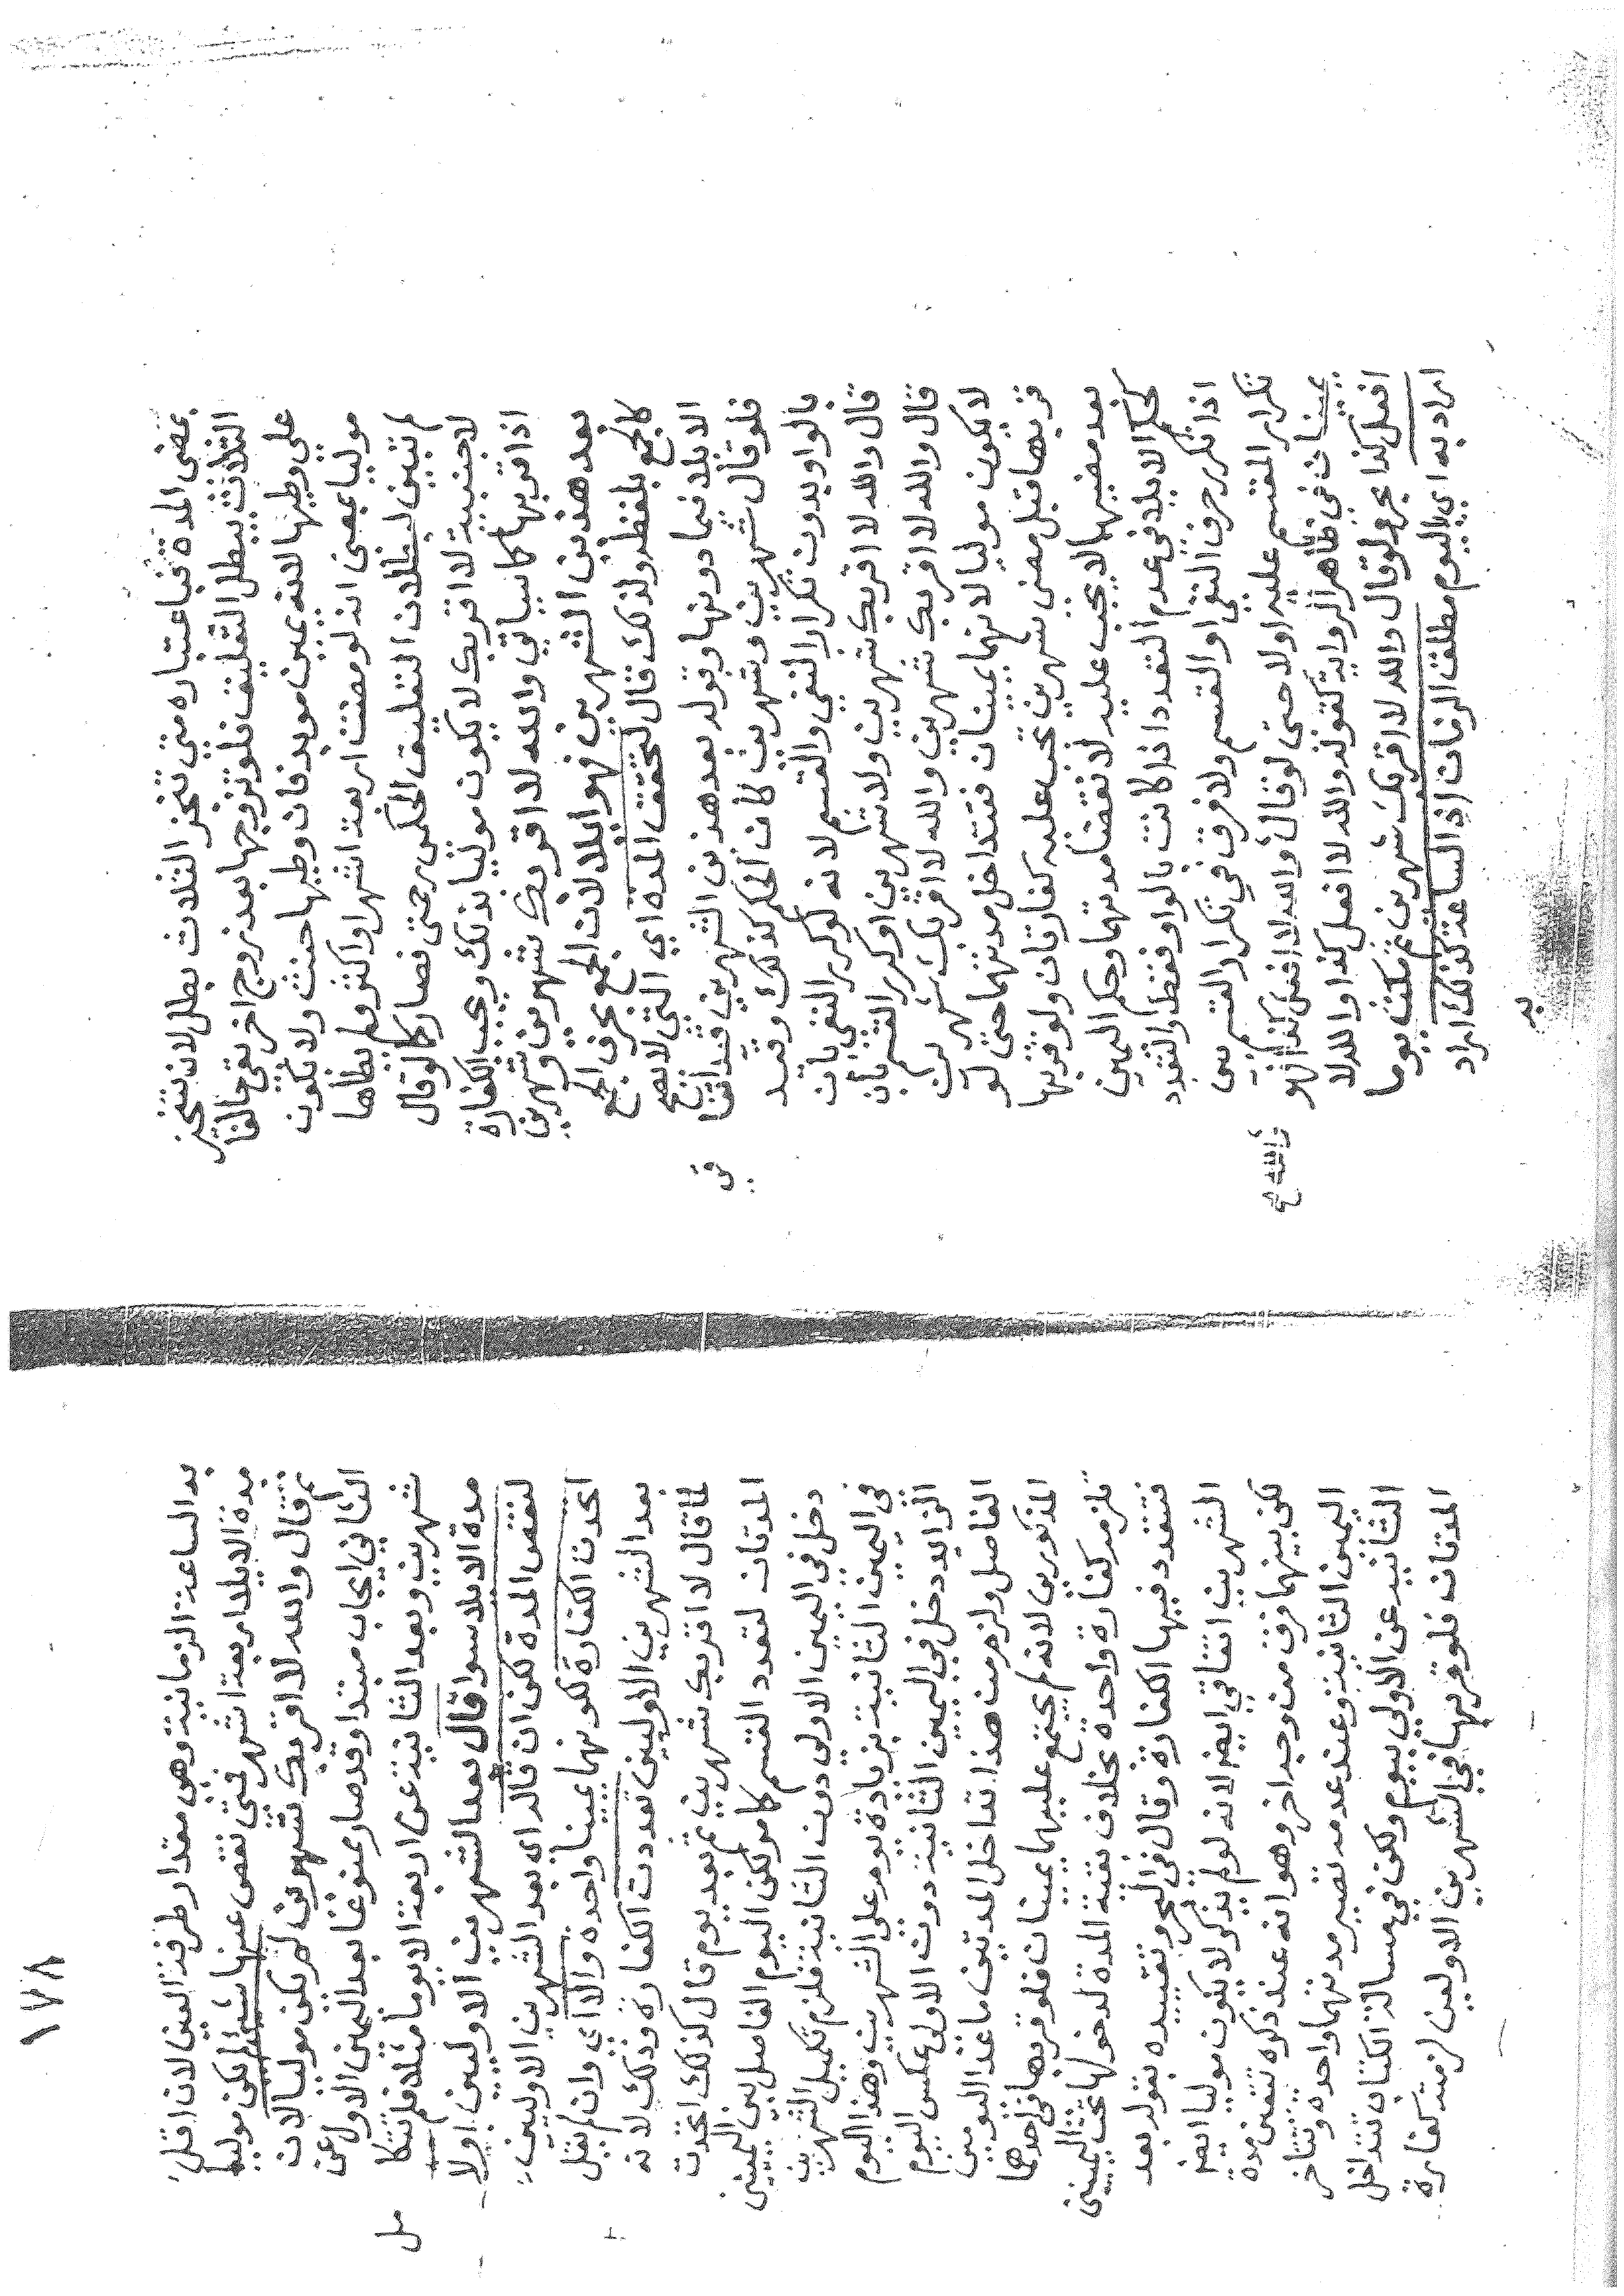 بمضى المدة فباعتباره متى تنجز الثلاث بطل لان تنجيز
الثلاث يبطل التعليق فلو تزوجها بعد زوج اخر بقى حالفا
على وطيها لانه يمين موبد فان وطيها حنث ولا يكون
موليا بمعنى انه لو مضت اربعة اشهر او اكثر ولم يطأها
لم تبين لبطلان التعليق الحكمى حتى فصار كما لو قال
لاجنبية لا اقربك لا يكون موليا بذلك ويجب الكفارة
اذا قربها كما سياتي والله لا اقربك شهرين وشهرين
بعد هذين الشهرين فهو ايلا لان الجمع بحرف الجمع
كالجمع بلفظه ولذلك قال لتحقق المدة اي التي لا يصح
الايلا فيما دونها وقوله بعد هذين الشهرين قيد اتفا
قى
فلو قال شهرين وشهرين كان الحكم كذلك وقيد
بالواو بدون تكرار النفي والقسم لانه لو كرر النفي بان
قال والله لا اقربك شهرين ولا شهرين او كرر القسم بان
قال والله لا اقربك شهرين والله لا اقربك شهرين
لا يكون موليا لانهما يمينان فتتداخل مدتهما حتى لو
قربها قبل مضى شهرين تجب عليه كفارتان ولو قربها
بعد مضيهما لا يجب عليه لانقضا مدتهما وحكم اليمين
كحكم الايلا في عدم التعدد اذا كانت بالواو فقط والتعدد
اذا تكرر حرف النفي او القسم ولا فرق في تكرار القسم بين
تكرار المقسم عليه اولا حتى لو قال والله لا افعل كذا فهو
والله صح
يمينان في ظاهر الرواية كقوله والله لا افعل كذا والله لا
افعل كذا بحر ولو قال والله لا اقربك شهرين ثم مكث يوما
اراد به اي باليوم مطلق الزمان اذ الساعة كذلك اراد
به
١٧٨
به الساعة الزمانية وهي مقدار طرفة العين لان اقل
مدة الايلا اربعة اشهر فمتى نقص عنها شيئا لم يكن موليا
ثم قال والله لا اقربك شهرين لم يكن موليا لان
الثاني ايجاب مبتدا وقد صار ممنوعا بعد اليمين الاولى عن
شهرين وبعد الثانية عن اربعة الا يوما مثلا فلم تتكا
مل
مدة الايلا سوا قال بعد الشهرين الاولين اولا
لنقص المدة لكن ان قاله اي بعد الشهرين الاولين
اتحدت الكفارة لكونهما يمينا واحدة والا اي وان لم يقل
بعد الشهرين الاولين تعددت الكفارة وذلك لانه
لما قال لا اقربك شهرين ثم بعد يوم قال كذلك اتحدت
المدتان لتعدد القسم كما مر لكن اليوم الفاصل بين اليمينين
دخل في اليمين الاولى دون الثانية فلزم تكميل الشهرين
في اليمين الثانية بزيادة يوم على الشهرين وهذا اليوم
الزايد دخل في اليمين الثانية دون الاولى عكس اليوم
الفاصل ولزم من هذا تداخل المدتين ما عدا اليومين
المذكورين لانه لم يجتمع عليهما يمينان فلو قربها في احدهما
تلزمه كفارة واحدة بخلاف بقية المدة لدخولها تحت اليمينين
فتتعدد فيها الكفارة وقال في البحر وتقييده بقوله بعد
الشهرين اتفاقي ايضا لانه لو لم يذكر لا يكون موليا ايضا
لكن بينهما فرق من وجه اخر وهو انه عند ذكره تتعين مدة
اليمين الثانية وعند عدمه تصير مدتهما واحدة وتتاخر
الثانية عن الاولى بيوم ولكن في مسالة الكتاب تتداخل
المدتان فلو قربها في الشهرين الاولين لزمته كفارة